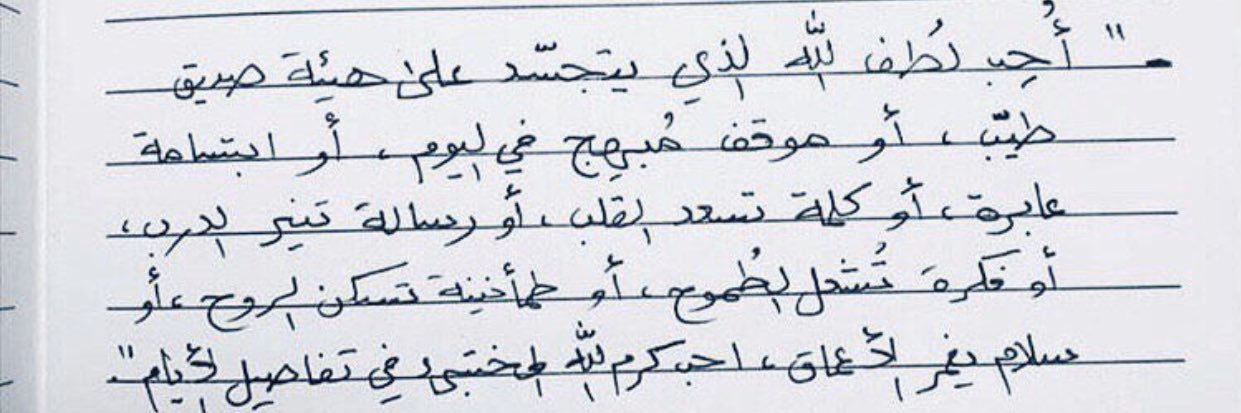 - " أُحِب لُطف الله الذي يتجسّد على هيئة صديق
طيّب ، أو موقف مُبهِج في اليوم ، أو ابتسامة
عابرة ، أو كلمة تسعد القلب ، أو رسالة تنير الدرب ،
أو فكرة تُشعل الطُموح ، أو طمأنينة تسكن الروح ، أو
سلام يغمر الأعماق ، احب كرم الله المختبئ في تفاصيل الأيام " .